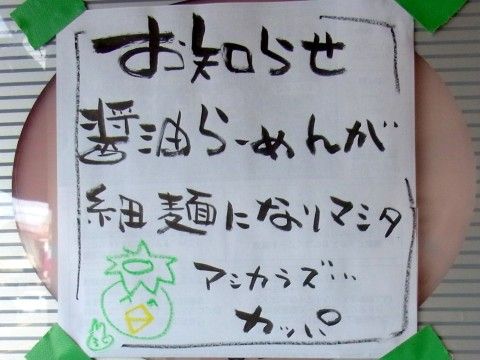 お知らせ
醤油らーめんが
細麺になりマシタ
アシカラズ…
カッパ